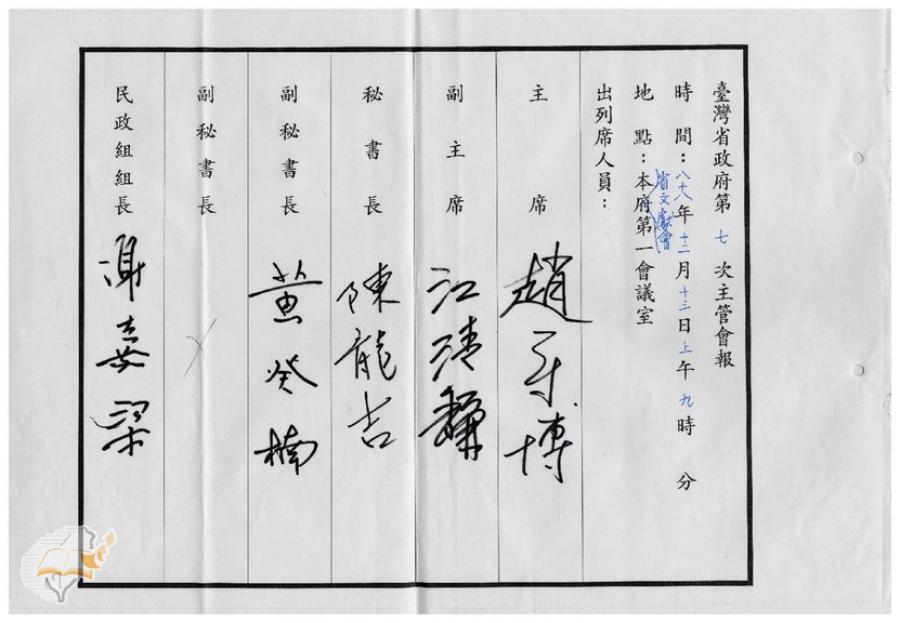 臺灣省政府第 七 次主管會報
時間：八十八年十二月十三日上午九時 分
地點：本府第一會議室
省文獻會
出列席人員：
主席 趙守博
副主席 江清馦
秘書長 陳龍吉
副秘書長 黃癸楠
副秘書長
民政組組長 謝嘉梁